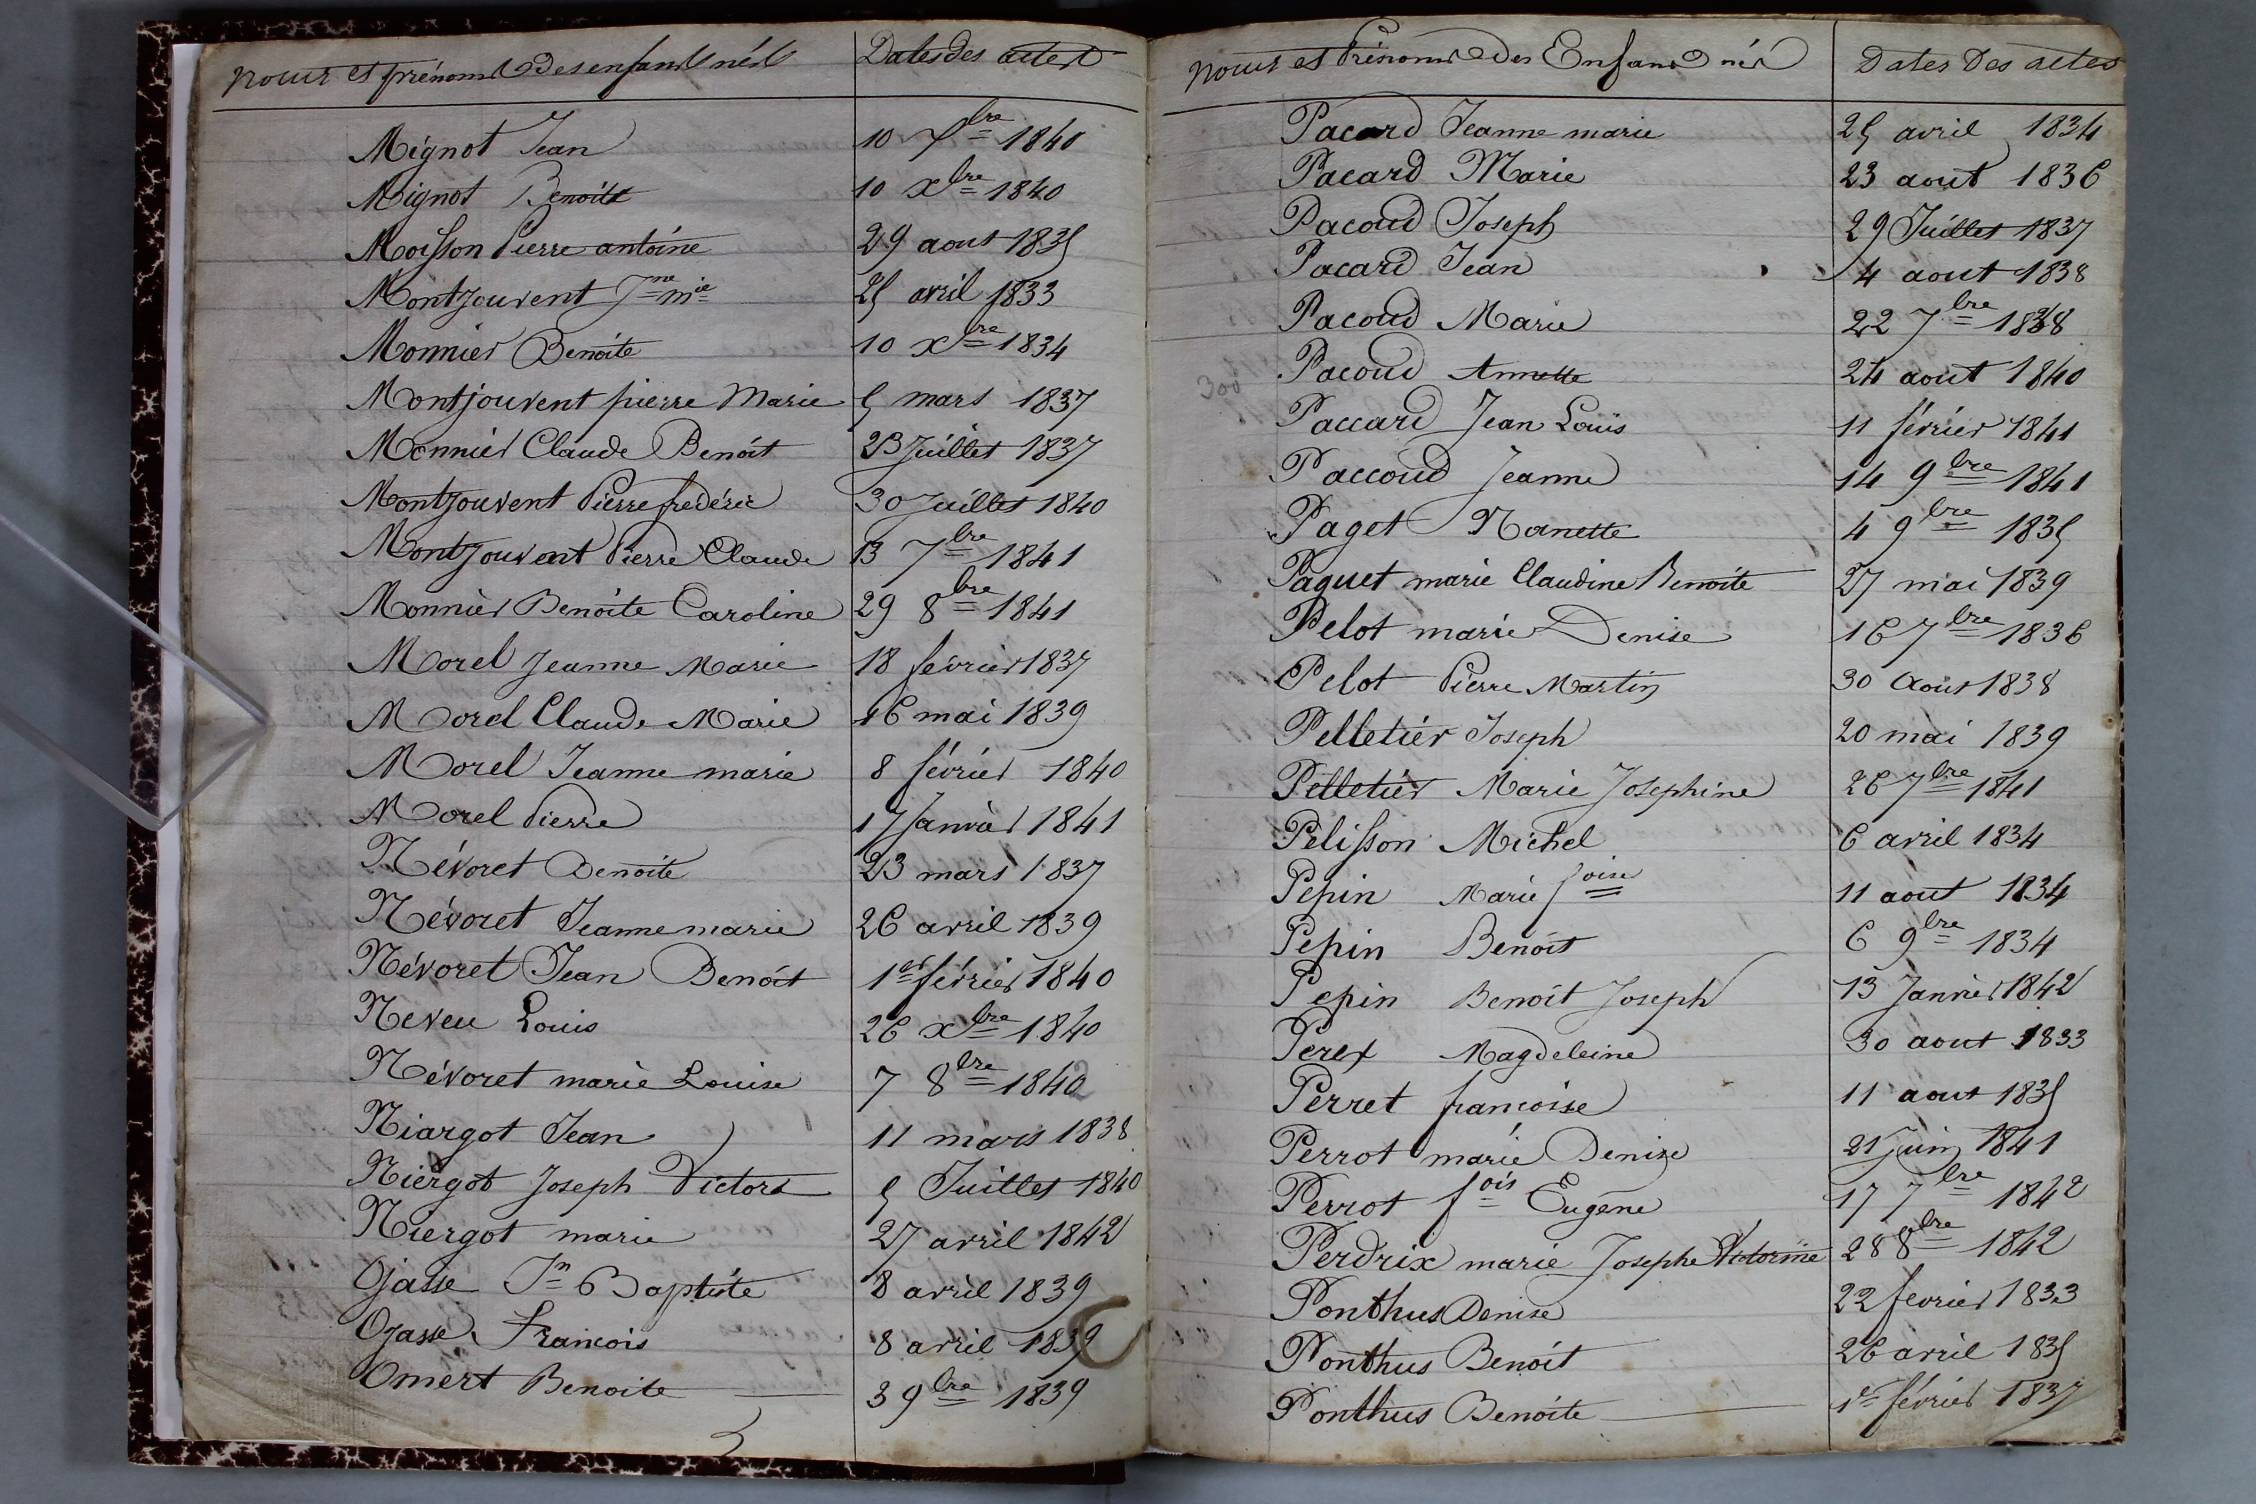 noms et prénoms des enfants nés Dates des actes
Mignot Jean 10 7bre 1840
Mignot Benoite 10 xbre 1840
Moisson Pierre antoine 29 aout 1835
Montjouvent Jne mie 25 avril 1833
Monnier Benoite 10 xbre 1834
Montjouvent pierre Marie 5 mars 1837
Monnier Claude Benoit 23 Juillet 1837
Montjouvent Pierre frédéric 30 Juillet 1840
Montjouvent Pierre Claude 13 7bre 1841
Monnier Benoite Caroline 29 8bre 1841
Morel Jeanne Marie 18 février 1837
Morel Claude Marie 16 mai 1839
Morel Jeanne marie 8 février 1840
Morel Pierre 17 Janvier 1841
Névoret Benoite 23 mars 1837
Névoret Jeanne marie 26 avril 1839
Névoret Jean Benoit 1er février 1840
Neveu Louis 26 xbre 1840
Névoret marie Louise 7 8bre 1842
Niargot Jean 11 mars 1838
Niergot Joseph Victor 5 Juillet 1840
Niergot marie 27 avril 1842
Ojasse Jn Baptiste 8 avril 1839
Ojasse François 8 avril 1839
Omert Benoite 3 9bre 1839
noms et Prénoms des Enfans nés Dates Des actes
Pacard Jeanne marie 25 avril 1834
Pacard Marie 23 aout 1836
Pacoud Joseph 29 Juillet 1837
Pacard Jean 4 aout 1838
Pacoud Marie 22 7bre 1838
300 Pacoud Annette 24 aout 1840
Paccard Jean Louis 11 février 1841
Paccoud Jeanne 14 9bre 1841
Paget Nanette 4 9bre 1835
Paquet marie Claudine Benoite 27 mai 1839
Pelot marie Denise 16 7bre 1836
Pelot Pierre Martin 30 Aout 1838
Pelletier Joseph 20 mai 1839
Pelletier Marie Josephine 26 7bre 1841
Pelisson Michel 6 avril 1834
Pepin Marie foise 11 aout 1834
Pepin Benoit 6 9bre 1834
Pepin Benoit Joseph 13 Janvier 1842
Perex Magdeleine 30 aout 1833
Perret françoise 11 aout 1835
Perrot marie Denise 21 Juin 1841
Perrot fois Eugène 17 7bre 1842
Perdrix marie Josephe Victorine 28 8bre 1842
Ponthus Denise 22 fevrier 1833
Ponthus Benoit 26 avril 1835
Ponthus Benoite 1er février 1837